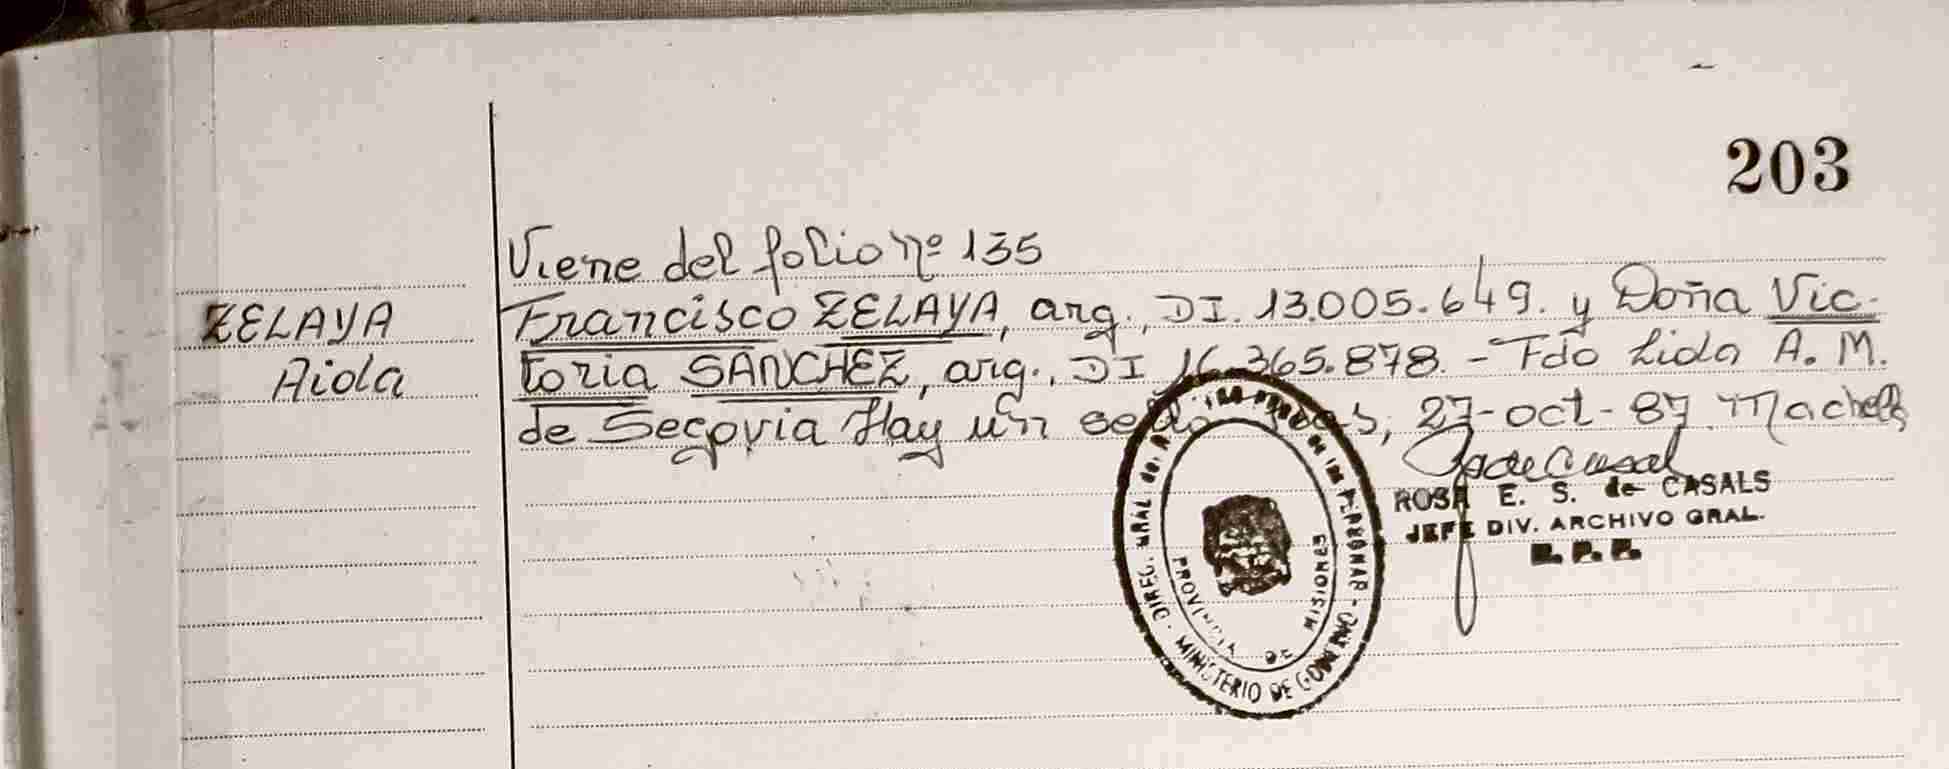 203
Viene del folio nº 135
ZELAYA
Aida
Francisco ZELAYA, arg., DI. 13.005.649. y Doña Vic-
toria SANCHEZ, arg., DI 16.365.878. - Fdo Lida A. M.
de Segovia Hay un sello, 27-oct-87.
ROSA E. S. de CASALS
JEFE DIV. ARCHIVO GRAL.
R. P. P.
DIREC. GRAL. DE LAS PERSONAS - MINISTERIO DE GOBIERNO
PROVINCIA DE MISIONES